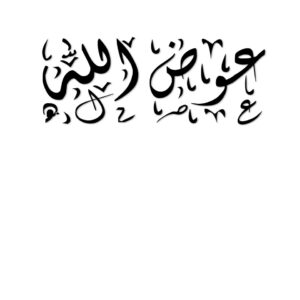 عوض الله